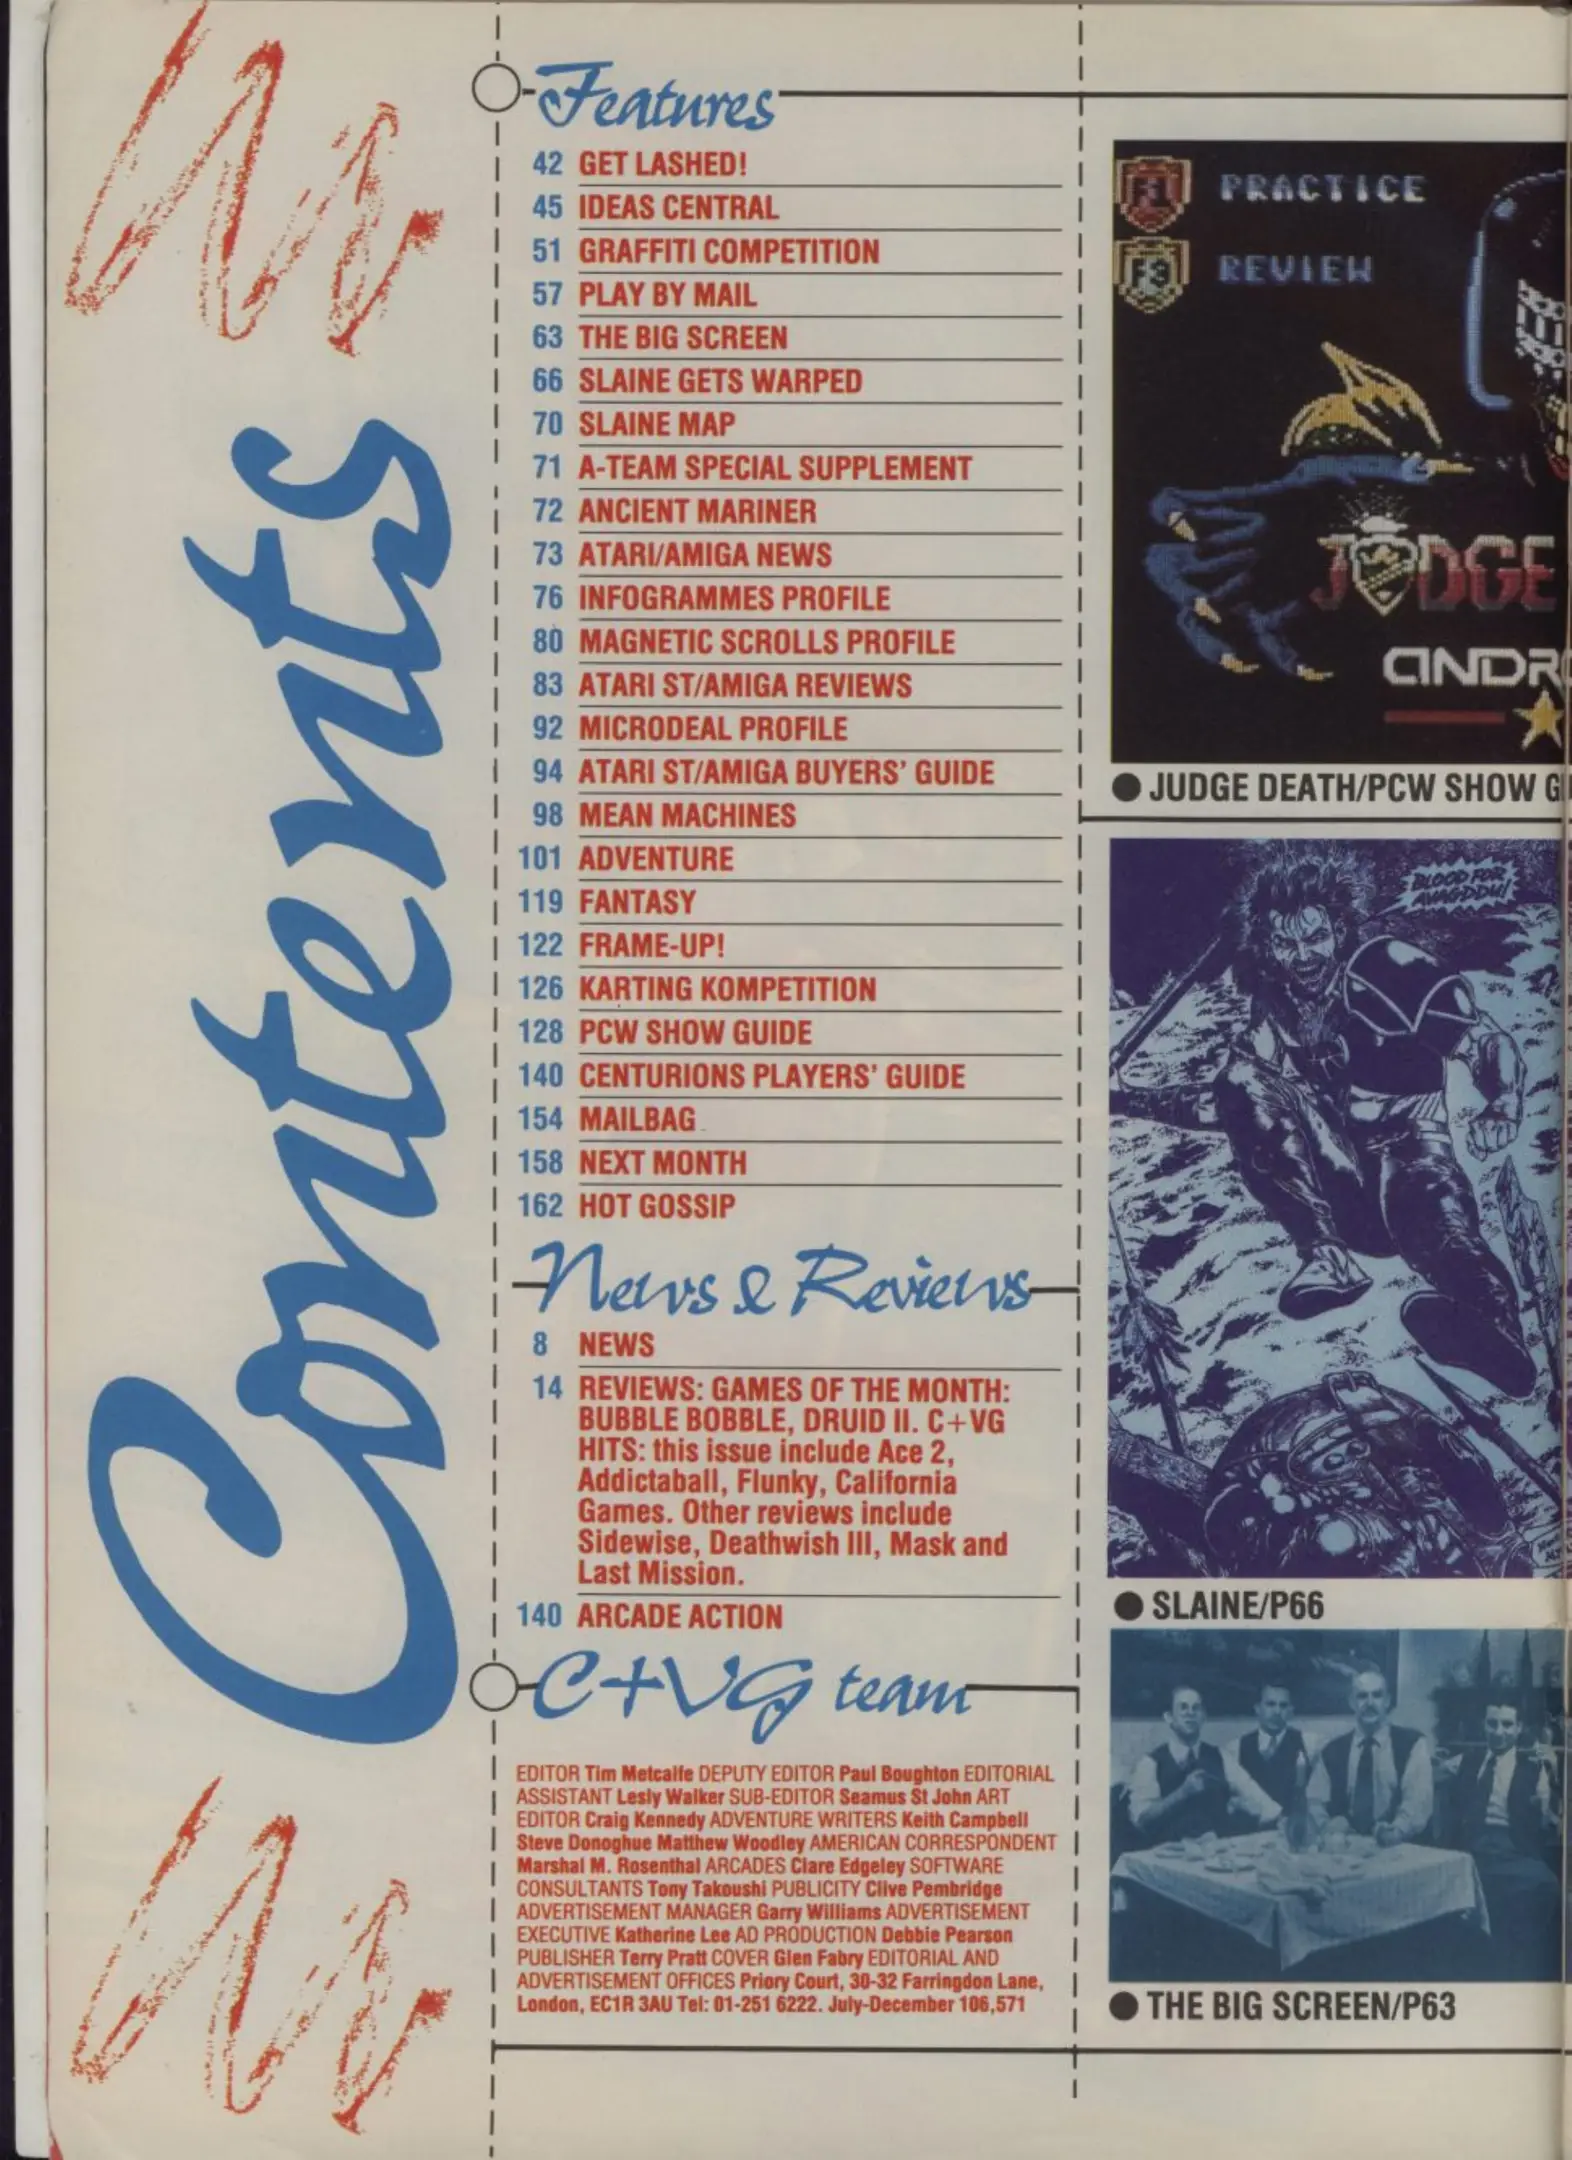 Contents
Features
42 GET LASHED!
45 IDEAS CENTRAL
51 GRAFFITI COMPETITION
57 PLAY BY MAIL
63 THE BIG SCREEN
66 SLAINE GETS WARPED
70 SLAINE MAP
71 A-TEAM SPECIAL SUPPLEMENT
72 ANCIENT MARINER
73 ATARI/AMIGA NEWS
76 INFOGRAMMES PROFILE
80 MAGNETIC SCROLLS PROFILE
83 ATARI ST/AMIGA REVIEWS
92 MICRODEAL PROFILE
94 ATARI ST/AMIGA BUYERS' GUIDE
98 MEAN MACHINES
101 ADVENTURE
119 FANTASY
122 FRAME-UP!
126 KARTING KOMPETITION
128 PCW SHOW GUIDE
140 CENTURIONS PLAYERS' GUIDE
154 MAILBAG
158 NEXT MONTH
162 HOT GOSSIP
News & Reviews
8 NEWS
14 REVIEWS: GAMES OF THE MONTH:
BUBBLE BOBBLE, DRUID II. C+VG
HITS: this issue include Ace 2,
Addictaball, Flunky, California
Games. Other reviews include
Sidewise, Deathwish III, Mask and
Last Mission.
140 ARCADE ACTION
C+VG team
EDITOR Tim Metcalfe DEPUTY EDITOR Paul Boughton EDITORIAL
ASSISTANT Lesly Walker SUB-EDITOR Seamus St John ART
EDITOR Craig Kennedy ADVENTURE WRITERS Keith Campbell
Steve Donoghue Matthew Woodley AMERICAN CORRESPONDENT
Marshal M. Rosenthal ARCADES Clare Edgeley SOFTWARE
CONSULTANTS Tony Takoushi PUBLICITY Clive Pembridge
ADVERTISEMENT MANAGER Garry Williams ADVERTISEMENT
EXECUTIVE Katherine Lee AD PRODUCTION Debbie Pearson
PUBLISHER Terry Pratt COVER Glen Fabry EDITORIAL AND
ADVERTISEMENT OFFICES Priory Court, 30-32 Farringdon Lane,
London, EC1R 3AU Tel: 01-251 6222. July-December 106,571
F1 PRACTICE
F3 REVIEW
JUDGE
ANDR
● JUDGE DEATH/PCW SHOW G
BLOOD FOR
AVAGDDU!
● SLAINE/P66
● THE BIG SCREEN/P63